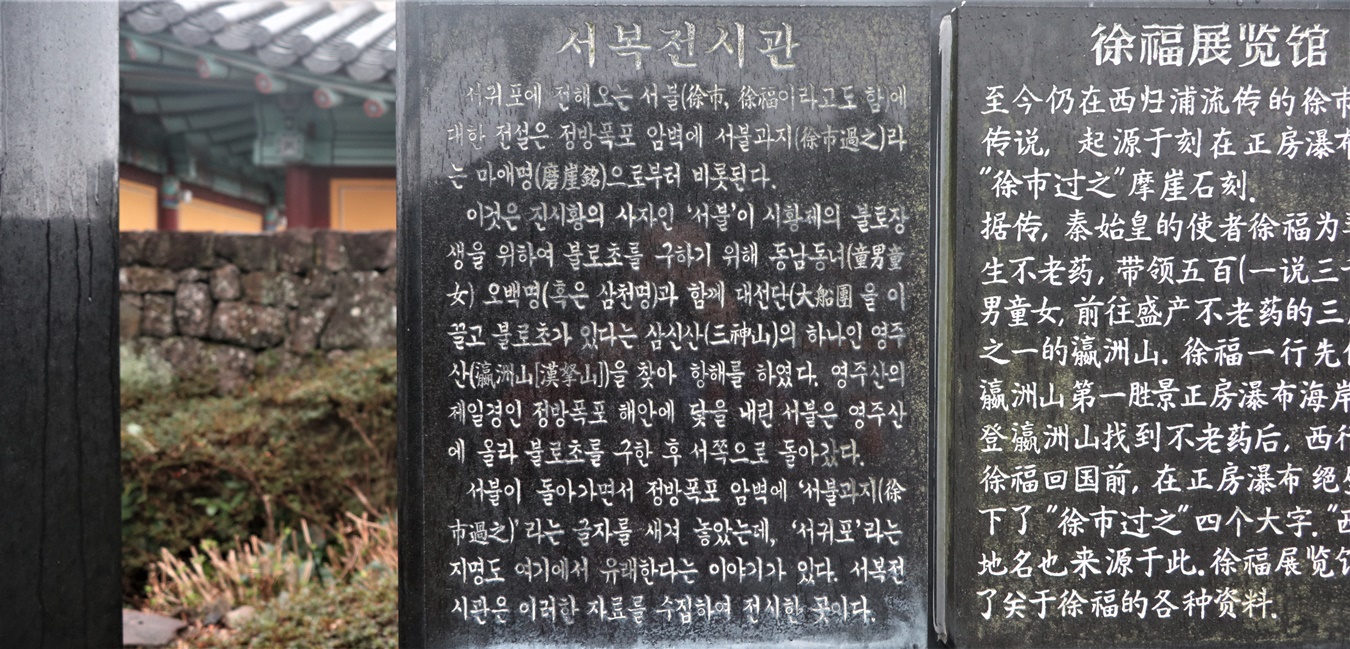 서복전시관
서귀포에 전해오는 서불(徐市, 徐福이라고도 함)에
대한 전설은 정방폭포 암벽에 서불과지(徐市過之)라
는 마애명(磨崖銘)으로부터 비롯된다.
이것은 진시황의 사자인 '서불'이 시황제의 불로장
생을 위하여 불로초를 구하기 위해 동남동녀(童男童
女) 오백명(혹은 삼천명)과 함께 대선단(大船團 을 이
끌고 불로초가 있다는 삼신산(三神山)의 하나인 영주
산(瀛洲山[漢拏山])을 찾아 항해를 하였다. 영주산의
제일경인 정방폭포 해안에 닻을 내린 서불은 영주산
에 올라 불로초를 구한 후 서쪽으로 돌아갔다.
서불이 돌아가면서 정방폭포 암벽에 '서불과지(徐
市過之)'라는 글자를 새겨 놓았는데, '서귀포'라는
지명도 여기에서 유래한다는 이야기가 있다. 서복전
시관은 이러한 자료를 수집하여 전시한 곳이다.
徐福展览馆
至今仍在西归浦流传的徐市
传说, 起源于刻在正房瀑布
"徐市过之"摩崖石刻.
据传, 秦始皇的使者徐福为
生不老药, 带领五百(一说三
男童女, 前往盛产不老药的三
之一的瀛洲山. 徐福一行先
瀛洲山第一胜景正房瀑布海岸
登瀛洲山找到不老药后, 西
徐福回国前, 在正房瀑布 绝
下了"徐市过之"四个大字. "
地名也来源于此. 徐福展览
了关于徐福的各种资料.